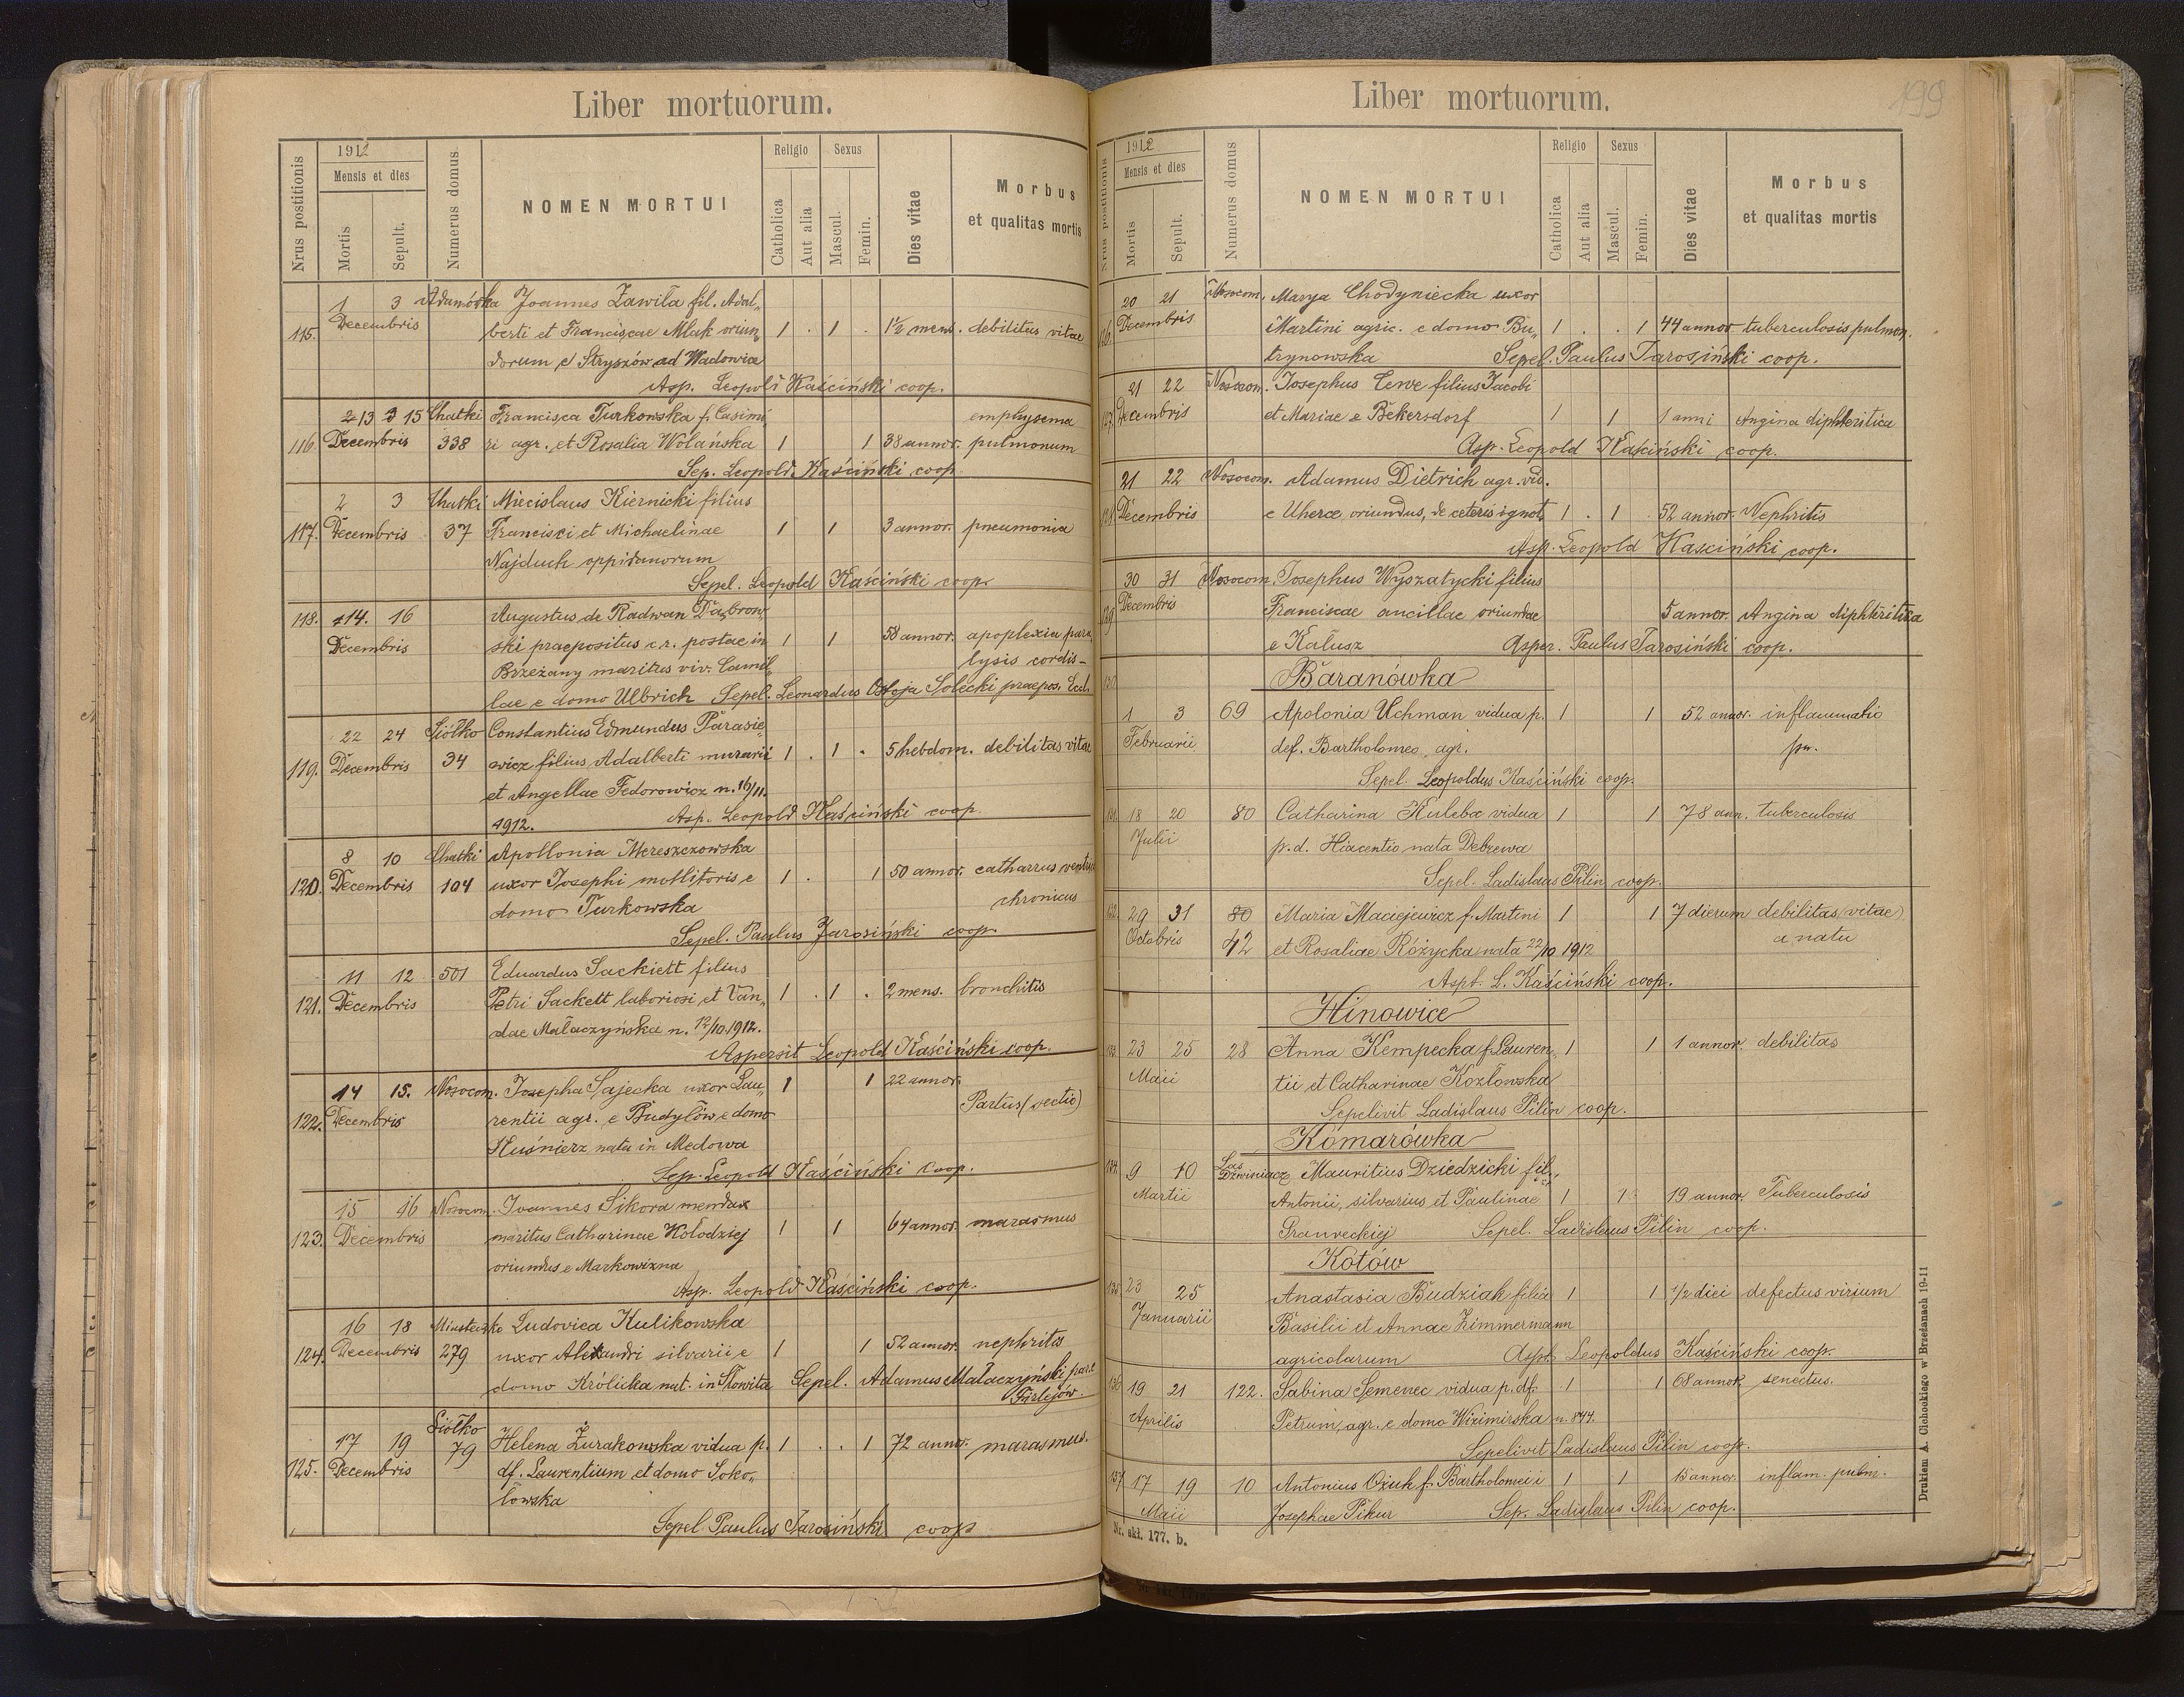 Liber mortuorum.
Nrus postitionis
1912
Mensis et dies
Mortis
Sepult.
Numerus domus
NOMEN MORTUI
Religio
Catholica
Aut alia
Sexus
Mascul.
Femin.
Dies vitae
Morbus
et qualitas mortis
1 3 Adamówka Joannes Zawiła fil. Adal„
115. Decembris berti et Franciscae Mlak oriun„ 1 . 1 . 1½ mens. debilitas vitae
dorum e Stryszów ad Wadowice
Asp. Leopold Kaściński coop.
2 13 3 15 Chatki Francisca Turkowska f. Casimi„ emphysema
116. Decembris 338 ri agr. et Rosalia Wolańska 1 1 38 annor. pulmonum
Sep. Leopold Kaściński coop.
2 3 Chatki Miecislaus Kiernicki filius
117. Decembris 37 Francisci et Michaelinae 1 1 3 annor. pneumonia
Najduch oppidanorum
Sepel. Leopold Kaściński coop.
118. 14. 16 Augustus de Radwan Dąbrow„
Decembris ski praepositus c.r. postae in 1 1 58 annor. apoplexia para
Brzeżany maritus viv. Camil„ lysis cordis
lae e domo Ulbrich Sepel. Leonardus Ostoja Solecki praepos. Eccl.
22 24 Siółko Constantius Edmundus Parasie„
119. Decembris 34 wicz filius Adalberti murarii 1 . 1 . 5 hebdom. debilitas vitae
et Angellae Fedorowicz n. 16/11.
1912. Asp. Leopold Kaściński coop.
8 10 Chatki Apollonia Mereszczowska
120. Decembris 104 uxor Josephi mollitoris e 1 . 1 50 annor. catharrus ventric
domo Turkowska chronicus
Sepel. Paulus Jarosiński coop.
11 12 501 Eduardus Sackiett filius
121. Decembris Petri Sackett laboriosi et Van„ 1 . 1 . 2 mens. bronchitis
dae Małaczyńska n. 12/10.1912.
Aspersit Leopold Kaściński coop.
14 15. Nosocom. Josepha Sajecka uxor Lau„ 1 1 22 annor.
122. Decembris rentii agr. e Budyłów e domo Partus (sectio)
Kuśnierz nata in Medowa
Sep. Leopold Kaściński coop.
15 16 Nosocom. Joannes Sikora mendax
123. Decembris maritus Catharinae Kołodziej 1 1 64 annor. marasmus
oriundus e Markowizna
Asp. Leopold Kaściński coop.
16 18 Miasteczko Ludovica Kulikowska
124. Decembris 279 uxor Alexandri silvarii e 1 1 52 annor. nephritis
domo Królicka nat. in Słowita Sepel. Adamus Małaczyński par.
Firlejów.
Siółko
17 19 79 Helena Żurakowska vidua p. 1 . . 1 72 annor. marasmus.
125. Decembris df. Laurentium et domo Soko„
łowska
Sepel Paulus Jarosiński coop
Liber mortuorum.
199
Nrus postitionis
1912
Mensis et dies
Mortis
Sepult.
Numerus domus
NOMEN MORTUI
Religio
Catholica
Aut alia
Sexus
Mascul.
Femin.
Dies vitae
Morbus
et qualitas mortis
20 21 Nosocom. Marya Chodyniecka uxor
126 Decembris Martini agric. e domo Bu„ 1 . . 1 44 annor. tuberculosis pulmon.
trynowska Sepel. Paulus Jarosiński coop.
21 22 Nosocom. Josephus Cerve filius Jacobi
127 Decembris et Mariae e Bekersdorf 1 1 1 anni Angina diphteritica
Asp. Leopold Kaściński coop.
21 22 Nosocom. Adamus Dietrich agr. vid.
128 Decembris e Uherce oriundus, de ceteris ignot. 1 . 1 . 52 annor. Nephritis
Asp. Leopold Kaściński coop.
30 31 Nosocom. Josephus Wyszatycki filius
129 Decembris Franciscae ancillae oriundae 5 annor. Angina diphteritica
e Kałusz Asper. Paulus Jarosiński coop.
130 Baranówka
1 3 69 Apolonia Uchman vidua p. 1 1 52 annor. inflammatio
Februarii def. Bartholomeo agr. pu.
Sepel. Leopoldus Kaściński coop.
131 18 20 80 Catharina Kuleba vidua 1 1 78 ann. tuberculosis
Julii p. d. Hiacentio nata Debrewa
Sepel. Ladislaus Pilin coop.
132 29 31 80 Maria Maciejewicz f. Martini 1 1 7 dierum debilitas (vitae)
Octobris 42 et Rosaliae Różycka nata 22/10 1912 a natu
Aspt. L. Kaściński coop.
Hinowice
133 23 25 28 Anna Kempecka f. Lauren„ 1 1 1 annor. debilitas
Maii tii et Catharinae Kozłowska
Sepelivit Ladislaus Pilin coop.
Komarówka
134 9 10 Las Dzwiniacz Mauritius Dziedzicki fil.
Martii Antonii, silvarius et Paulinae 1 1 19 annor. Tuberculosis
Sepel. Ladislaus Pilin coop.
Kotów
135 23 25 Anastasia Budziak filia 1 1 1/2 diei defectus virium
Januarii Basilii et Annae Zimmermann
agricolarum Aspt. Leopoldus Kaściński coop.
136 19 21 122. Sabina Semenec vidua p. df. 1 1 68 annor. senectus.
Aprilis Petrum, agr. e domo Wizimirska n. 844.
Sepelivit Ladislaus Pilin coop.
137 17 19 10 Antonius Ożuh f. Bartholomei i 1 1 15 annor. inflam. pulm.
Maii Josephae Pikur Sep. Ladislaus Pilin coop.
Nr. skł. 177. b.
Drukiem A. Cichockiego w Brzeżanach 19-11